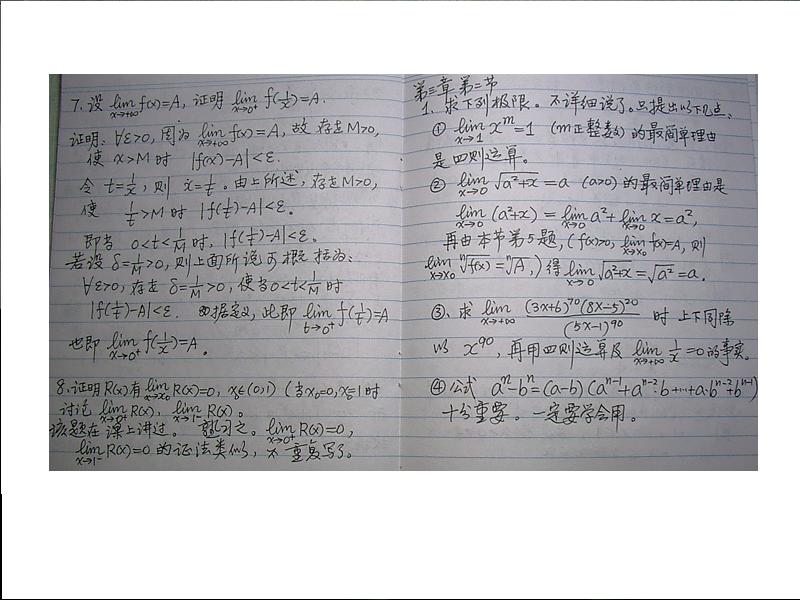 7. 设 lim x→+∞ f(x)=A, 证明 lim x→0⁺ f(1/x)=A.
证明: ∀ε>0, 因为 lim x→+∞ f(x)=A, 故存在 M>0,
使 x>M 时 |f(x)-A|<ε.
令 t=1/x, 则 x=1/t. 由上所述, 存在 M>0,
使 1/t>M 时 |f(1/t)-A|<ε.
即当 0<t<1/M 时, |f(1/t)-A|<ε.
若设 δ=1/M>0, 则上面所说可概括为:
∀ε>0, 存在 δ=1/M>0, 使当 0<t<1/M 时
|f(1/t)-A|<ε. 据定义, 此即 lim t→0⁺ f(1/t)=A
也即 lim x→0⁺ f(1/x)=A.
8. 证明 R(x) 有 lim x→x₀ R(x)=0, x₀∈(0,1) (当 x₀=0, x₀=1 时
讨论 lim x→0⁺ R(x), lim x→1⁻ R(x).
该题在课上讲过。 lim x→0⁺ R(x)=0,
lim x→1⁻ R(x)=0 的证法类似, 不重复写了。
第三章 第二节
1. 求下列极限。不详细说了。只提出以下几点:
① lim x→1 xᵐ=1 (m正整数) 的最简单理由
是四则运算。
② lim x→0 √(a²+x)=a (a>0) 的最简单理由是
lim x→0 (a²+x)=lim x→0 a²+lim x→0 x=a²,
再由本节第5题, (f(x)>0, lim x→x₀ f(x)=A, 则
lim x→x₀ ⁿ√f(x)=ⁿ√A,) 得 lim x→0 √(a²+x)=√a²=a.
③、求 lim x→+∞ (3x+6)⁷⁰(8x-5)²⁰/(5x-1)⁹⁰ 时 上下同除
以 x⁹⁰, 再用四则运算及 lim x→+∞ 1/x=0 的事实。
④ 公式 aⁿ-bⁿ=(a-b)(aⁿ⁻¹+aⁿ⁻²·b+…+a·bⁿ⁻²+bⁿ⁻¹)
十分重要。一定要学会用。